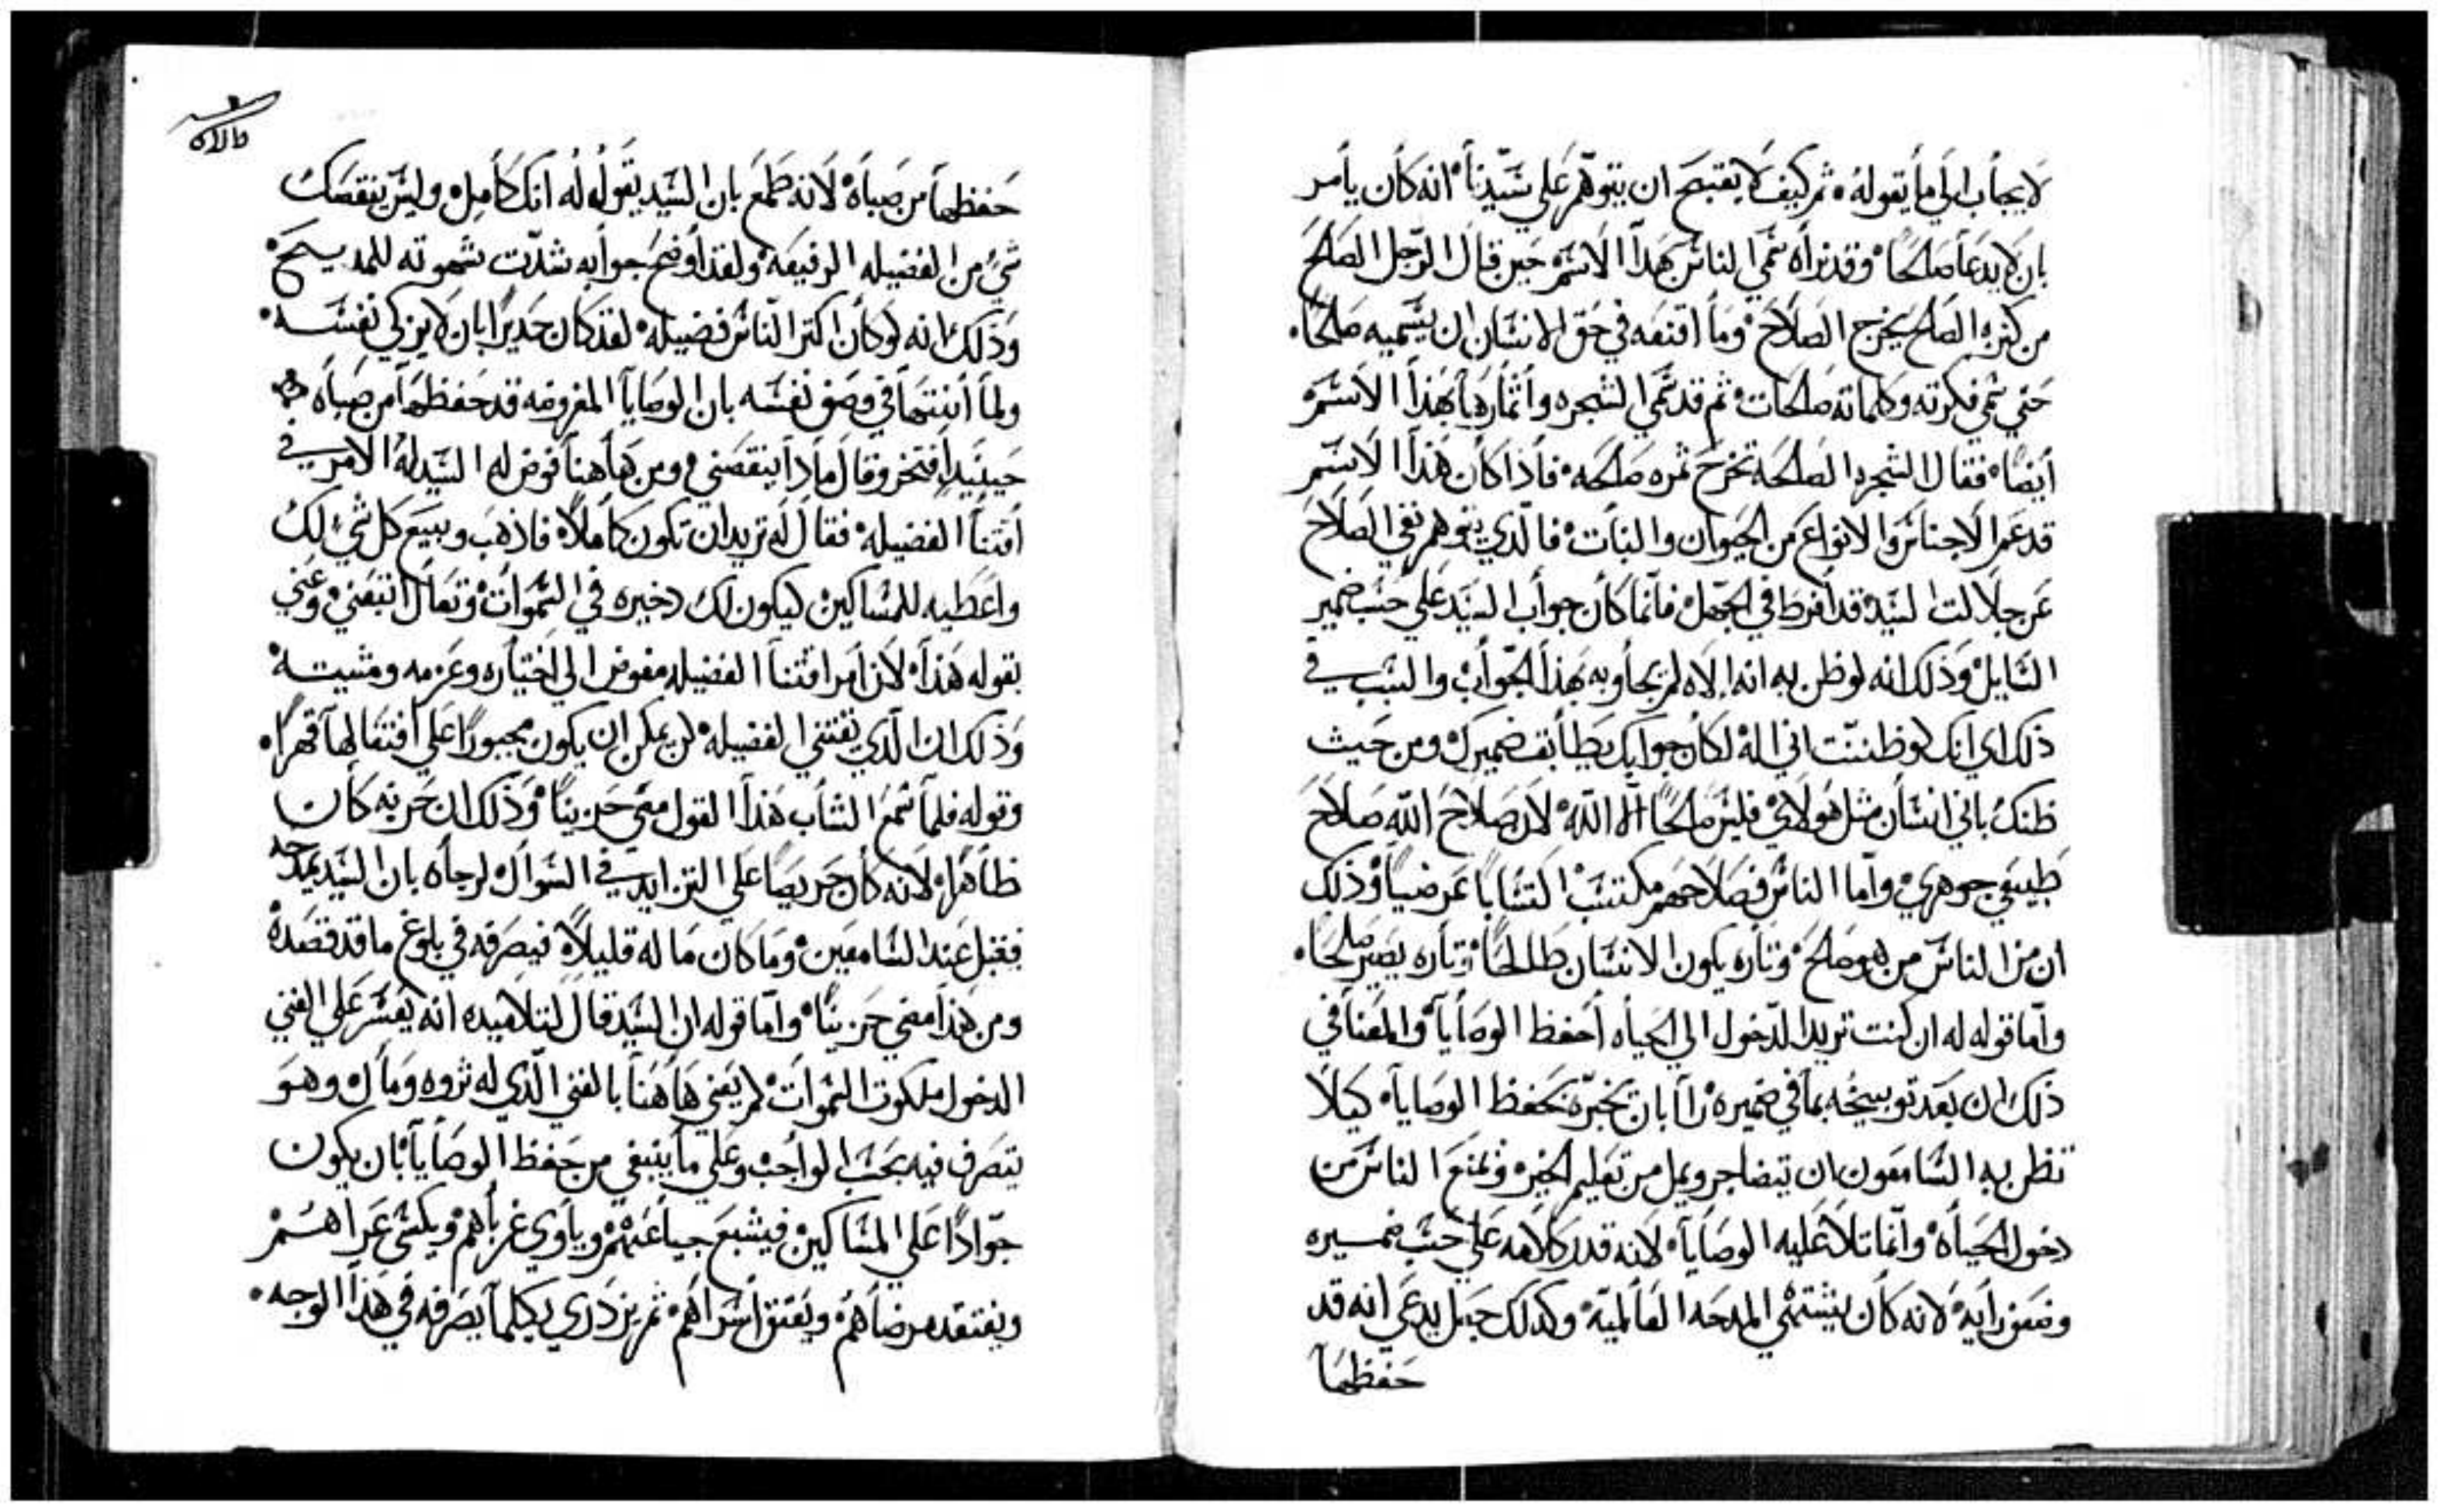 لايجاب الي ما يقوله ثم كيف لا يقبح ان يتوهم علي سيدنا انه كان يامر
بان لا يدعا صالحا وقد نراه سمي الناس بهذا الاسم حين قال الرجل الصالح
من كنزه الصالح يخرج الصلاح وما اقنعه في حق الانسان ان يسميه صالحا
حتي سمي فكرته وكلماته صالحات ثم قد سمي الشجره واثمارها بهذا الاسم
ايضا فقال الشجره الصالحه تخرج ثمره صالحه فاذا كان هذا الاسم
قد عم الاجناس والانواع من الحيوان والنبات فالذي يتوهم نفي الصلاح
عن جلالت السيد قد افرط في الجهل فانما كان جواب السيد علي حسب ضمير
السايل وذلك انه لو ظن به انه الاه لم يجاوبه بهذا الجواب والسبب في
ذلك اي انك لو ظننت اني اله لكان جوابك يطابق ضميرك ومن حيث
ظنك باني انسان مثل هولاي فليس صالحا الا الله لان صلاح الله صلاح
طبيعي جوهري واما الناس فصلاحهم مكتسب اكتسابا عرضيا وذلك
ان من الناس من هو صالح وتاره يكون الانسان طالحا وتاره يصير صالحا
واما قوله له ان كنت تريد الدخول الي الحياه احفظ الوصايا والمعنا في
ذلك ان بعد توبيخه بما في ضميره راا بان يخبره بحفظ الوصايا كيلا
تظن به السامعون ان يتضاجر ويمل من تعليم الخير ويمنع الناس من
دخول الحياه وانما تلا عليه الوصايا لانه قدر كلامه علي حسب ضميره
وضعف رايه لانه كان يشتهي المدحه العالميه وكذلك جعل يدعي انه قد
حفظها
حفظها من صباه لانه طمع بان السيد يقول له انك كامل وليس ينقصك
شي من الفضيله الرفيعه ولقد اوضح جوابه شدت شهوته للمديح
وذلك انه لو كان اكتر الناس فضيله لقد كان جديرا بان لا يزكي نفسه
ولما انتها في وصف نفسه بان الوصايا المفروضه قد حفظها من صباه
حينيد افتخر وقال مادا ينقصني ومن هاهنا فوض له السيد له الامر في
اقتنا الفضيله فقال له تريد ان تكون كاملا فاذهب وبيع كل شي لك
واعطيه للمساكين ليكون لك دخيره في السموات وتعال اتبعني وعني
بقوله هذا لان امر اقتنا الفضيله مفوض الي اختياره وعزمه ومشيته
وذلك ان الذي يقتني الفضيله لن يمكن ان يكون مجبورا علي اقتنا لها قهرا
وقوله فلما سمع الشاب هذا القول مضي حزينا وذلك ان حزنه كان
ظاهرا لانه كان حريصا علي التزايد في السوال لرجاه بان السيد يمدحه
فخجل عند السامعين وما كان ما له قليلا فيصرفه في بلوغ ما قد قصده
ومن هذا مضي حزينا واما قوله ان السيد قال لتلاميده انه يعسر علي الغني
الدخول ملكوت السموات لم يعني هاهنا بالغني الذي له ثروه ومال وهو
يتصرف فيه بحسب الواجب وعلي ما ينبغي من حفظ الوصايا بان يكون
جوادا علي المساكين فيشبع جياعهم وياوي غرباهم ويكسي عراهم
ويفتقد مرضاهم ويعتق اسراهم ثم يزدري بكلما يصرفه في هذا الوجه